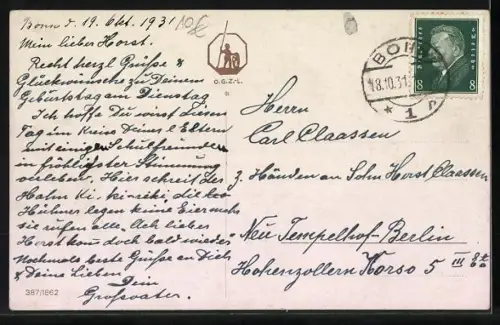 Bonn d. 19. Okt. 1931
Mein lieber Horst.
Recht herzl Grüße &
Glückwünsche zu Deinem
Geburtstag am Dienstag
Ich hoffe Du wirst diesen
Tag im Kreise Deiner l. Eltern
mit einigen Schulfreunden
in fröhlichster Stimmung
verleben. Hier schreit der
Hahn Ki-ki-riki die
Hühner legen keine Eier mehr
sie rufen alle "Ach lieber
Horst kom doch bald wieder
Nochmals beste Grüße an Dich
& Deine Lieben
Dein
Grossvater.
387/1862
10€
O.G.Z.-L.
BONN
18.10.31
* 1
DEUTSCHES REICH
8 8
Herrn
Carl Claassen
z. Händen an Sohn Horst Claassen
Neu Tempelhof-Berlin
Hohenzollern Korso 5 III